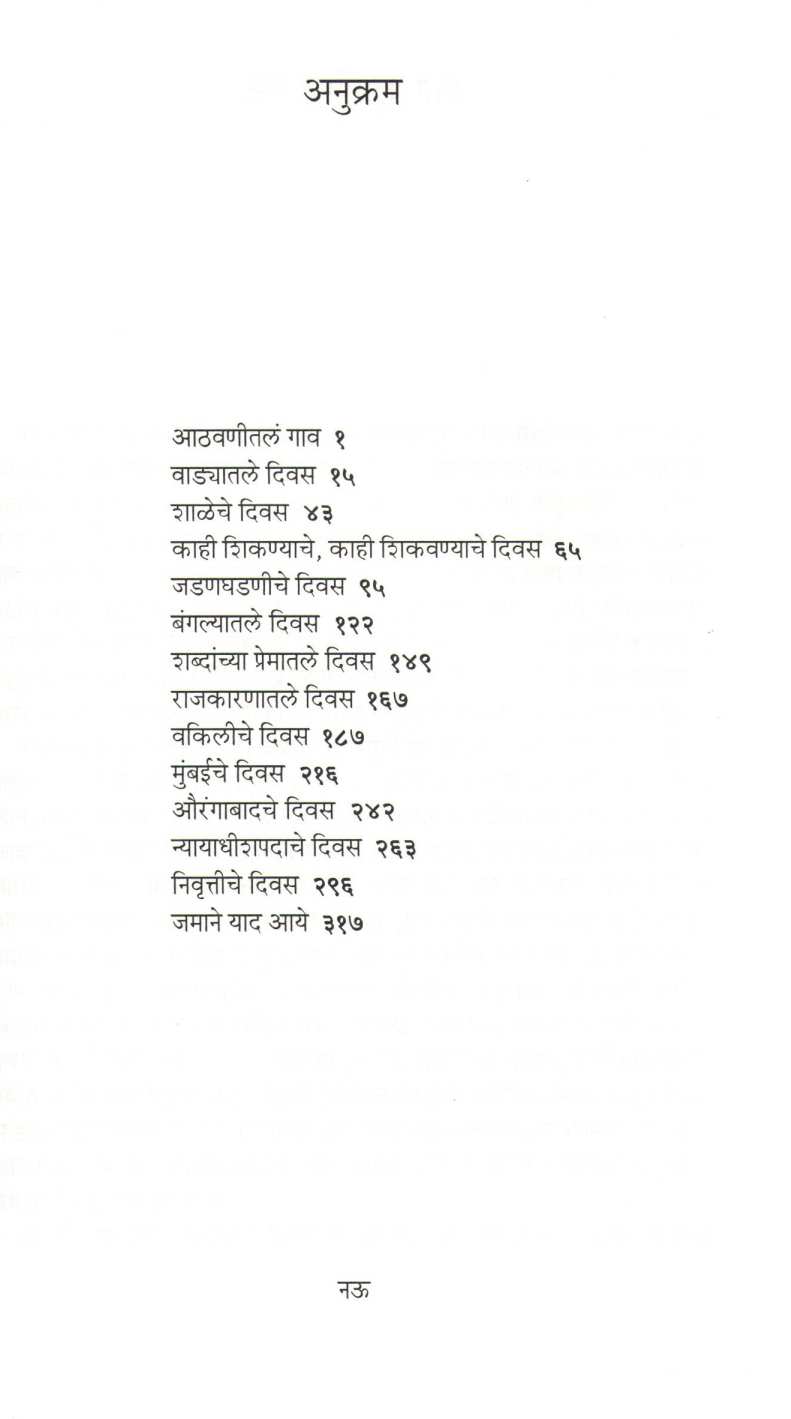 अनुक्रम
आठवणीतलं गाव १
वाड्यातले दिवस १५
शाळेचे दिवस ४३
काही शिकण्याचे, काही शिकवण्याचे दिवस ६५
जडणघडणीचे दिवस ९५
बंगल्यातले दिवस १२२
शब्दांच्या प्रेमातले दिवस १४९
राजकारणातले दिवस १६७
वकिलीचे दिवस १८७
मुंबईचे दिवस २१६
औरंगाबादचे दिवस २४२
न्यायाधीशपदाचे दिवस २६३
निवृत्तीचे दिवस २९६
जमाने याद आये ३१७
नऊ